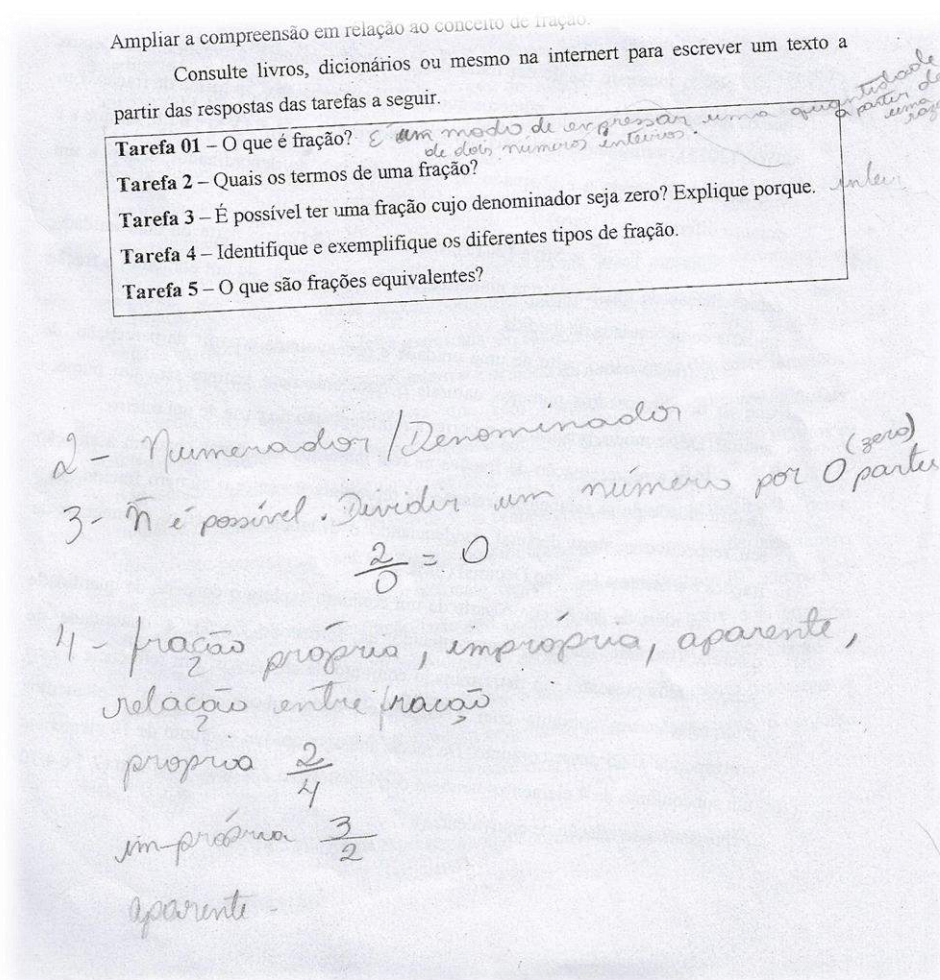 Ampliar a compreensão em relação ao conceito de fração.
Consulte livros, dicionários ou mesmo na internert para escrever um texto a
partir das respostas das tarefas a seguir.
Tarefa 01 – O que é fração? É um modo de expressar uma quantidade
a partir de
uma
de dois números inteiros.
Tarefa 2 – Quais os termos de uma fração?
Tarefa 3 – É possível ter uma fração cujo denominador seja zero? Explique porque.
Tarefa 4 – Identifique e exemplifique os diferentes tipos de fração.
Tarefa 5 – O que são frações equivalentes?
2 - Numerador/Denominador
3 - ñ é possível. Dividir um número por 0 (zero) partes
2/0 = 0
4 - fração própria, imprópria, aparente,
relação entre fração
propria 2/4
imprópria 3/2
aparente -